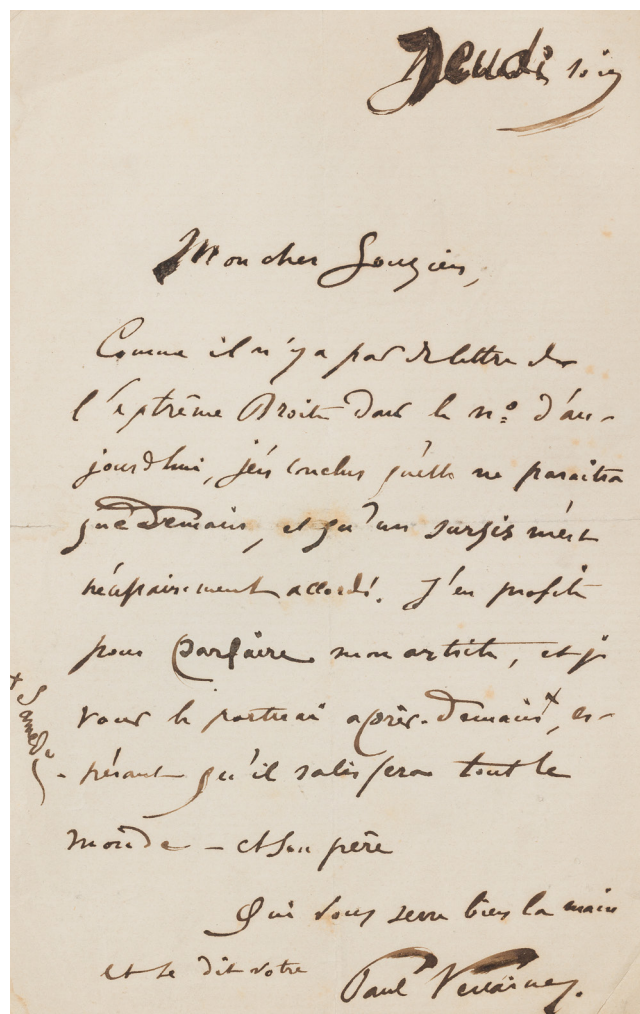 Jeudi soir
Mon cher Gouzien,
Comme il n'y a pas de lettre de
l'extrême Droite dans le nº d'au-
jourdhui, j'en conclus qu'elle ne paraîtra
que demain, et qu'un sursis m'est
nécessairement accordé. J'en profite
pour parfaire mon article, et je
vous le porterai après-demain +, es-
+ Samedi
-pérant qu'il satisfera tout le
monde – et son père
Qui vous serre bien la main
et se dit votre
Paul Verlaine.